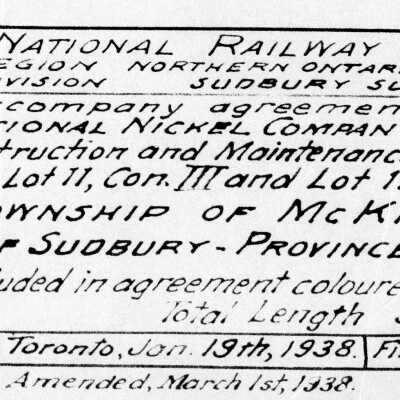 NATIONAL RAILWAY
REGION NORTHERN ONTAR
VISION SUDBURY SU
ccompany agreemen
TIONAL NICKEL COMPAN
truction and Maintenanc
Lot 11, Con. III and Lot 1
OWNSHIP OF MCK
OF SUDBURY - PROVINCE
luded in agreement coloure
Total Length
Toronto, Jan. 19th, 1938. Fi
Amended, March 1st, 1938.